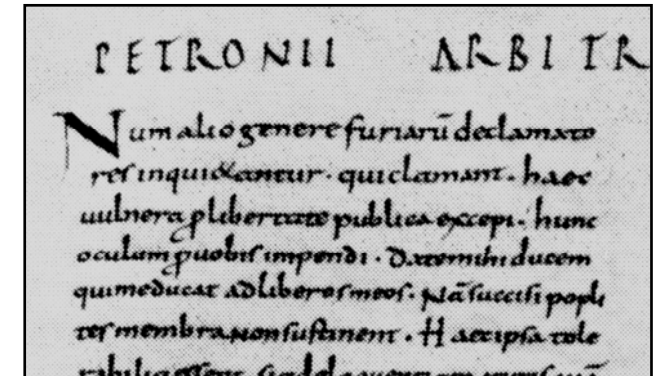 PETRONII ARBITR
Num alio genere furiarū declamato
res inqui&antur. qui clamant. haec
uulnera ꝓ libertate publica excepi. hunc
oculum ꝓ uobis impendi. Date mihi ducem
qui me ducat ad liberos meos. Nā succisi popli
tes membra non sustinent. Haec ipsa tole
rabilia essent